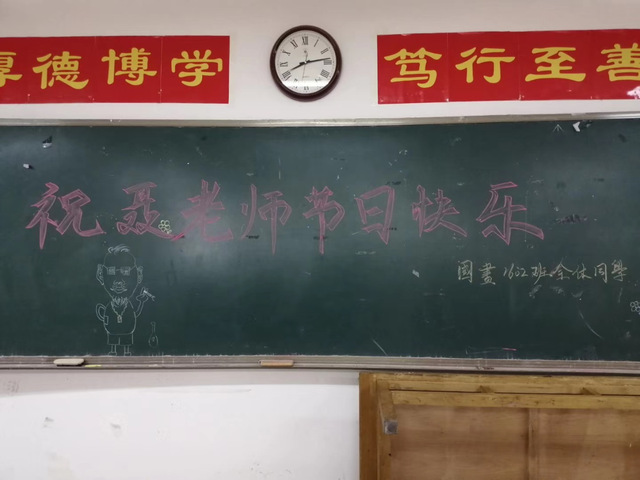 厚德博学
笃行至善
祝聂老师节日快乐
國畫1602班全体同學